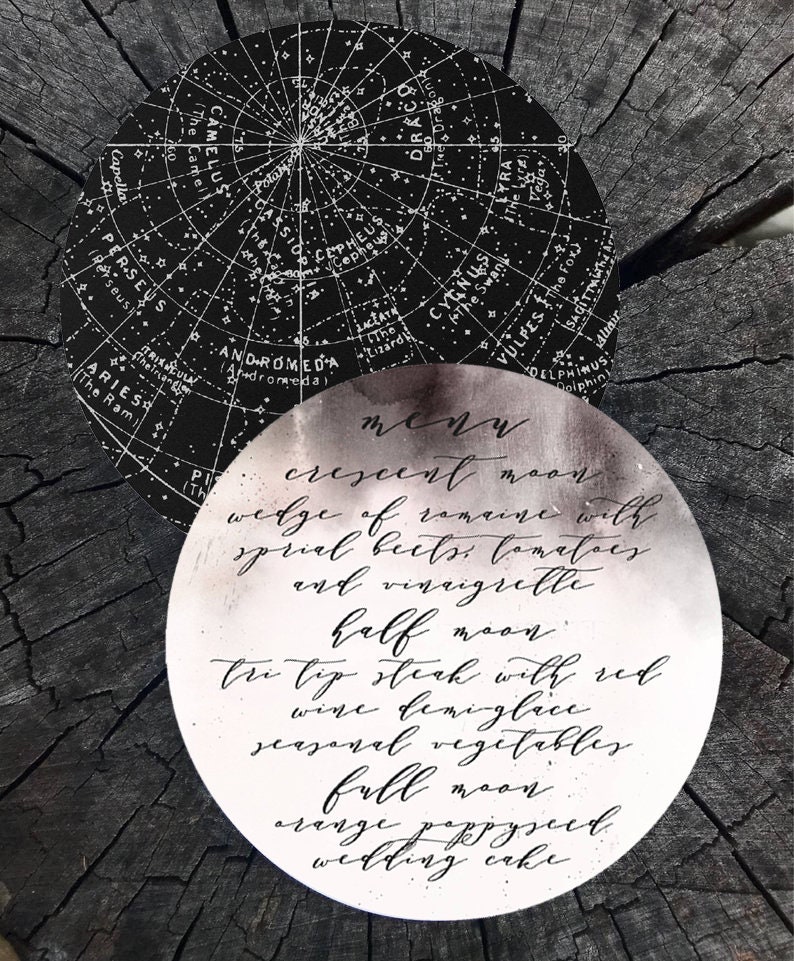 CAMELUS
(The Camel)
DRACO
(The Dragon)
LYRA
(The Lyre)
Vega
Capella
Polaris
60
75
75
60
45
30
PERSEUS
(Perseus)
CASSIOPEIA
CEPHEUS
(Cepheus)
CYGNUS
(The Swan)
(The Fox)
SAGITTA
Altair
LACERTA
(The
Lizard)
VULPES
45
ANDROMEDA
(Andromeda)
DELPHINUS
Dolphin)
ARIES
(The Ram)
(The
menu
crescent moon
wedge of romaine with
sprial beets, tomatoes
and vinaigrette
half moon
tri tip steak with red
wine demi-glace
seasonal vegetables
full moon
orange poppyseed
wedding cake